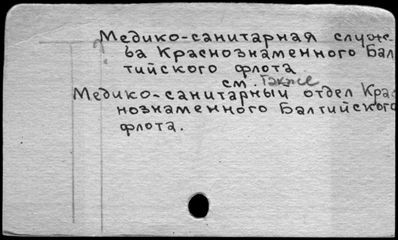 Медико-санитарная служ-
ба Краснознаменного Бал
тийского флота
см. также
Медико-санитарный отдел Крас
нознаменного Балтийского
флота.